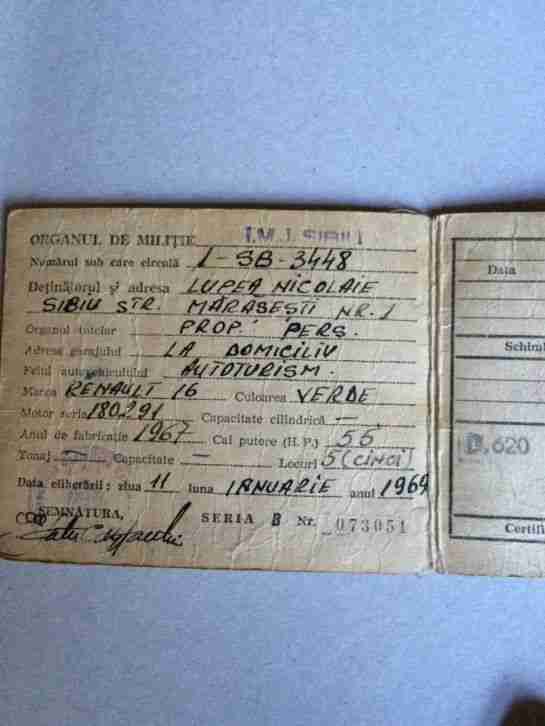 ORGANUL DE MILIȚIE I.M.J. SIBIU
Numărul sub care circulă 1-SB-3448
Deținătorul și adresa LUPEA NICOLAIE
SIBIU STR. MARASESTI NR. 1
Organul tutelar PROP. PERS.
Adresa garajului LA DOMICILIU
Felul autovehiculului AUTOTURISM.
Marca RENAULT 16 Culoarea VERDE
Motor seria 180291 Capacitate cilindrică —
Anul de fabricație 1967 Cai putere (H.P.) 55
Tonaj — Capacitate — Locuri 5 (CINCI)
Data eliberării: ziua 11 luna IANUARIE anul 1969
SEMNĂTURA,
SERIA B Nr. 073051
Data
Schimb
D.620
Certifi